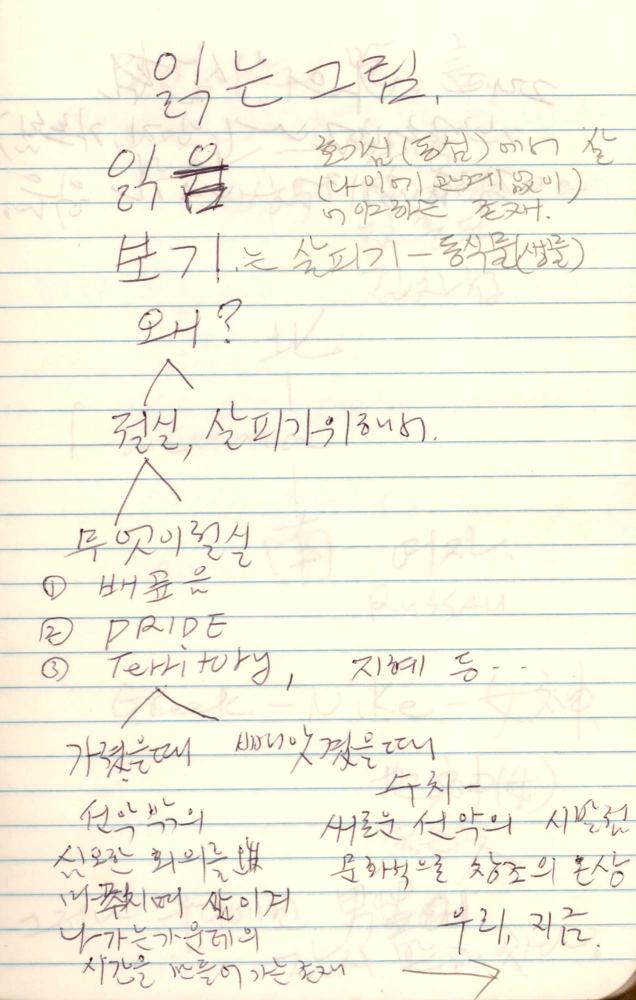 읽는 그림.
읽음
호기심(동심)에서 살
(나이에 관계없이)
야하는 존재.
보기는 살피기 - 동식물(생물)
왜?
현실, 살피기위해서.
무엇이현실
① 배꼽음
② PRIDE
③ Territory, 지혜 등..
가졌을때 빼앗겼을때
수치 -
선악밖의
새로운 선악의 시발점
심오한 회의를
문화적으로 창조의 온상
삶이겨
나가는가운데의
우리, 지금.
시간을 만들어가는존재